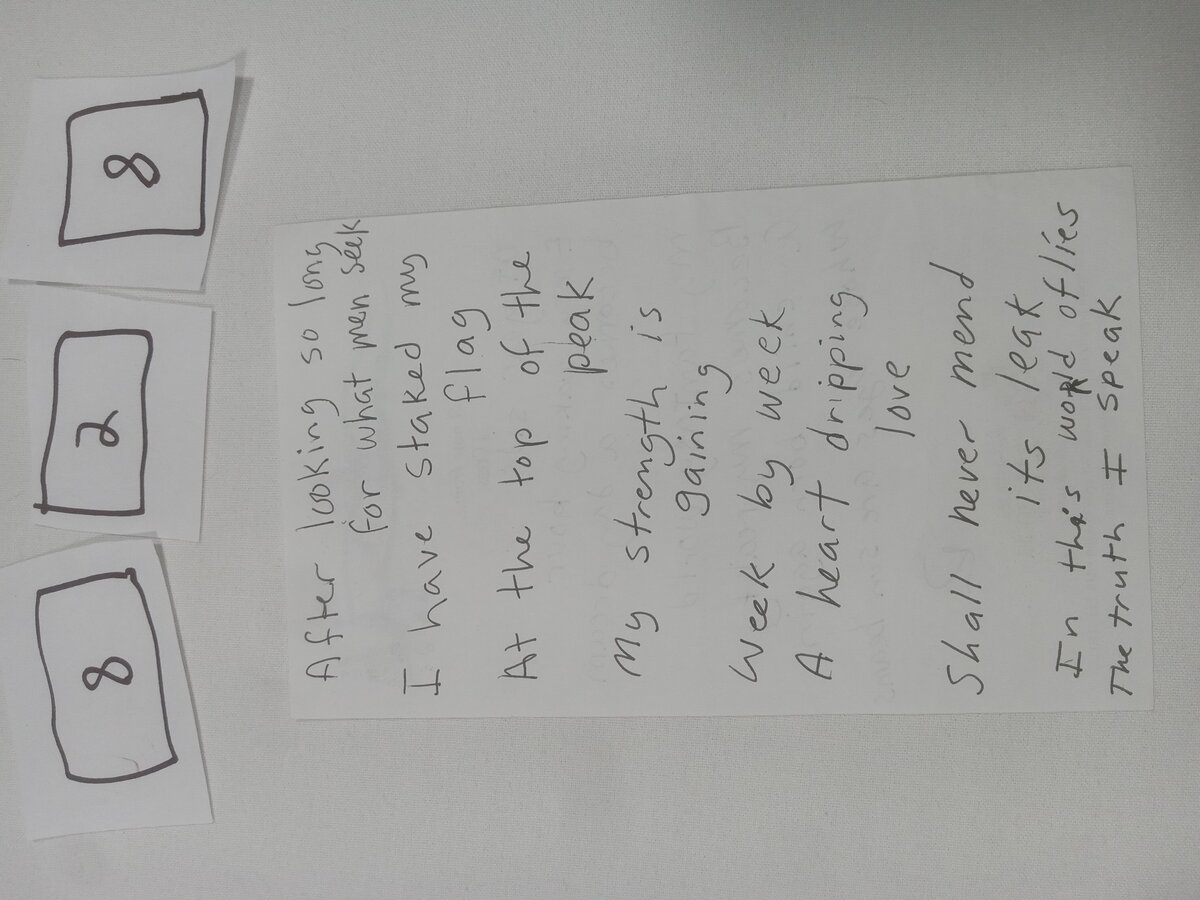 8
2
8
After looking so long
for what men seek
I have staked my
flag
At the top of the
peak
My strength is
gaining
Week by week
A heart dripping
love
Shall never mend
its leak
In this world of lies
The truth I speak